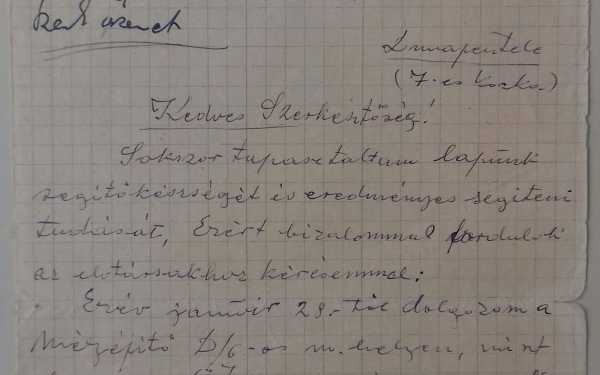 szerk üzenet
Dunapentele
(7-es kocka.)
Kedves Szerkesztőség!
Sokszor tapasztaltam lapunk
segitőkészségét és eredményes segiteni
tudását, Ezért bizalommal fordulok
az elvtársakhoz kérésemmel:
Ezév január 29.-től dolgozom a
Mélyépitő D/6-os m.helyen, mint